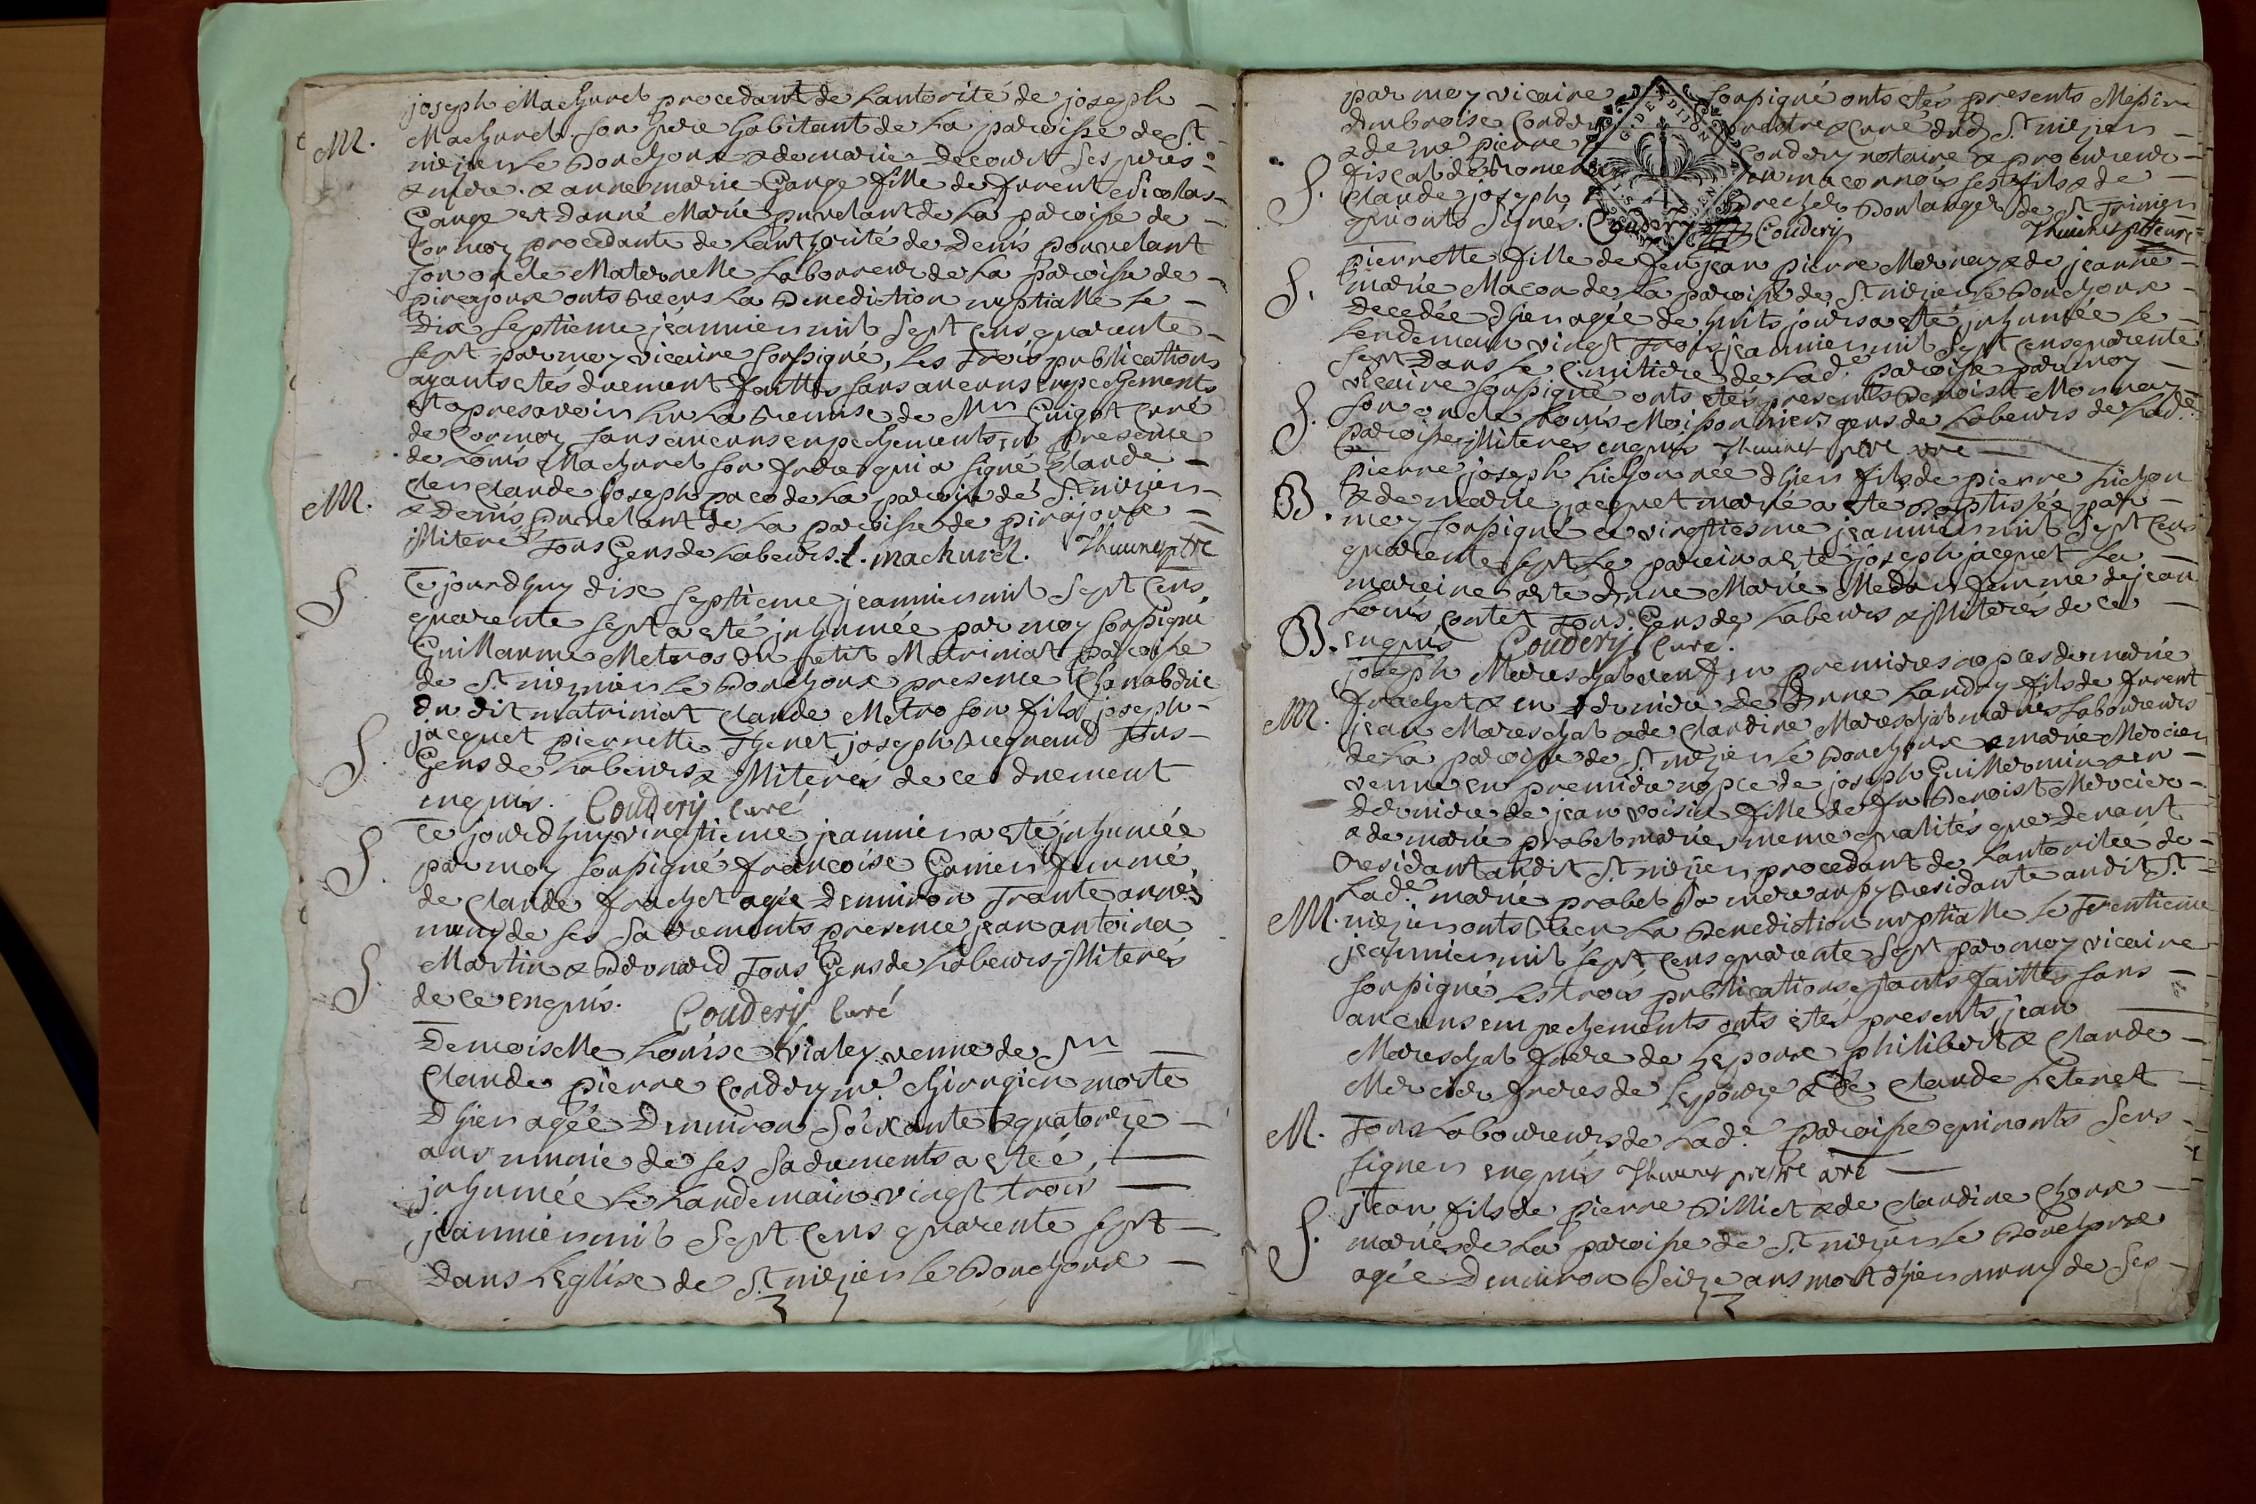 joseph Machurel procedant de Lautorité de joseph
M. Machurel son pere habitant de La paroisse de St
nizier le Bouchoux & de marie Decourt Ses peres
& mere. & anne marie Gange fille de furent Nicolas
Gange et Danne Marie puvelant de La paroisse de
Cormoz procedante de Lauthorité de Denis pouvelant
son oncle Maternelle Laboureur de La paroisse de
pirajoux onts receus La Benediction nuptialle le
Dix Septieme jeannier mil Sept Cens quarente
sept par moy vicaire soussigné, Les trois publications
ayants etés duement faittes sans aucuns empechements
et apres avoir lu la remise de Mr Guigot curé
de Cormoz sans aucuns empechements en presence
de Louis Machurel son frere qui a signé Claude
M. Claude joseph paco de La paroisse de St nizier
& Denis puvelant de La paroisse de pirajoux
jlliteré tous Gens de Labeurs. l. machurel. Thuuner ptre
S Ce jourdhuy dix septieme jeannier mil sept Cens
quarente sept a été inhumée par moy soussigné
Guillaume Metros du petit Matrimat paroisse
de St nizier le Bouchoux presence
du dit matrimat Claude Metro son fils joseph
S. jacquet pierrette Thenet joseph regnaud tous
Gens de Labeurs & jlliterés de ce duement
enquis. Coudery Curé
S. Ce jourdhuy vingtieme jeannier a eté inhumée
par moy soussigné francoise Gomier femme
de Claude frachet agée Denviron trante années
muny de ses Sacrements presence jean antoine
S. Martin & Bernard tous Gens de Labeurs jlliterés
de ce enquis. Coudery Curé
Demoiselle Louise vialey veuve de Sr
Claude pierre Coudery me chirurgien morte
Dhier agée Denviron Soixante & quatorze
ans munie de ses Sacrements a esteé
inhumée Le Landemain vingt trois
jeannier mil Sept Cens quarente sept
Dans Leglise de St nizier le Bouchoux
par moy vicaire soussigné onts etés presents Messire
Ambroise Coudery pretre & Curé dud St nizier
& de me pierre Coudery notaire & procureur
S. fiscal de Romenay en maconnois ses fils & de
Claude joseph Brecher Boulanger de St Trivier
qui onts Signés. Coudery Coudery Thuuner ptre
pierrette fille de feu jean pierre Mornay & de jeanne
S. marie Macon de La paroisse de St nizier le Bouchoux
decedée Dhier agée de huits jours a eté inhumée le
Lendemain vingt trois jeannier mil Sept cens quarente
Sept Dans Le Cimitiere de Lade paroisse par moy
vicaire soussigné onts etés presents Benoist Mornay
S. son oncle Louis Moissonnier gens de Labeurs de Lade
paroisse jlliterés enquis Thuuner ptre vre
pierre joseph Lichon née dhier fils de pierre Lichon
B. & de marie jacquet mariés a eté Baptissée par
moy soussigné ce vingtiesme jeannier mil Sept Cens
quarente sept Le parein a eté joseph jacquet La
mareine a eté Anne Marie Medan femme de jean
Louis Contet tous Gens de Labeurs & jlliterés de ce
B. enquis Coudery Curé.
joseph Mareschal veuf en premieres nopces de marie
frachet & en derniere de Anne Landry fils de furent
M. jean Mareschal & de Claudine Mareschal mariés Laboureurs
de La paroisse de St nizier le Bouchoux & marie Mercier
veuve en premiere nopce de joseph Guillermin & en
Derniere de jean voisin fille de fu Benoist Mercier
& de marie probet mariés meme qualités que devant
residant audit St nizier procedant de Lautoritée de
Lade marie probet Sa mere aussy residante audit St
M. nizier onts receu La Benediction nuptialle le Trentieme
jeannier mil sept Cens quarente Sept par moy vicaire
soussigné Les trois publications etants faittes sans
aucuns empechements onts etés presents jean
Mareschal frere de Lepoux philibert & Claude
Mercier freres de Lepouze & de Claude Letenet
M. Tous Laboureurs de Lade Paroisse qui nonts Sceus
signer enquis Thuuner prestre vre
jean fils de pierre Billiet & de Claudine Choux
S. mariés de La paroisse de St nizier le Bouchoux
agée Denviron Seize ans mort dhier muny de Ses